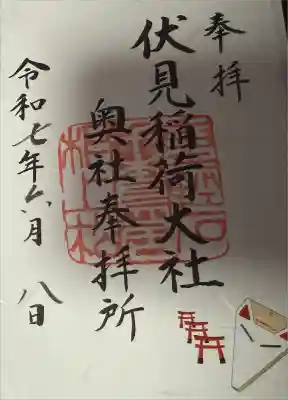 奉拝
伏見稲荷大社
奥社奉拝所
令和七年六月八日